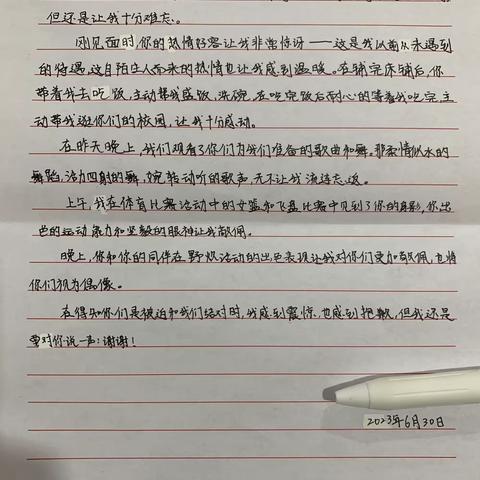 但还是让我十分难忘。
刚见面时,你的热情好客让我非常惊讶——这是我以前从未遇到
的待遇,这自陌生人而来的热情也让我感到温暖。在铺完床铺后,你
带着我去吃饭,主动帮我盛饭、洗碗,在吃完饭后耐心的等着我吃完,主
动带我逛你们的校园,让我十分感动。
在昨天晚上,我们观看了你们为我们准备的歌曲和舞。那柔情似水的
舞蹈,活力四射的舞,婉转动听的歌声,无不让我流连忘返。
上午,我在体育比赛活动中的女篮和飞盘比赛中见到了你的身影,你出
色的运动能力和坚毅的眼神让我敬佩。
晚上,你和你的同伴在野炊活动的出色表现让我对你们更加敬佩,也将
你们视为偶像。
在得知你们是被迫和我们结对时,我感到震惊,也感到抱歉,但我还是
要对你说一声:谢谢!
2023年6月30日